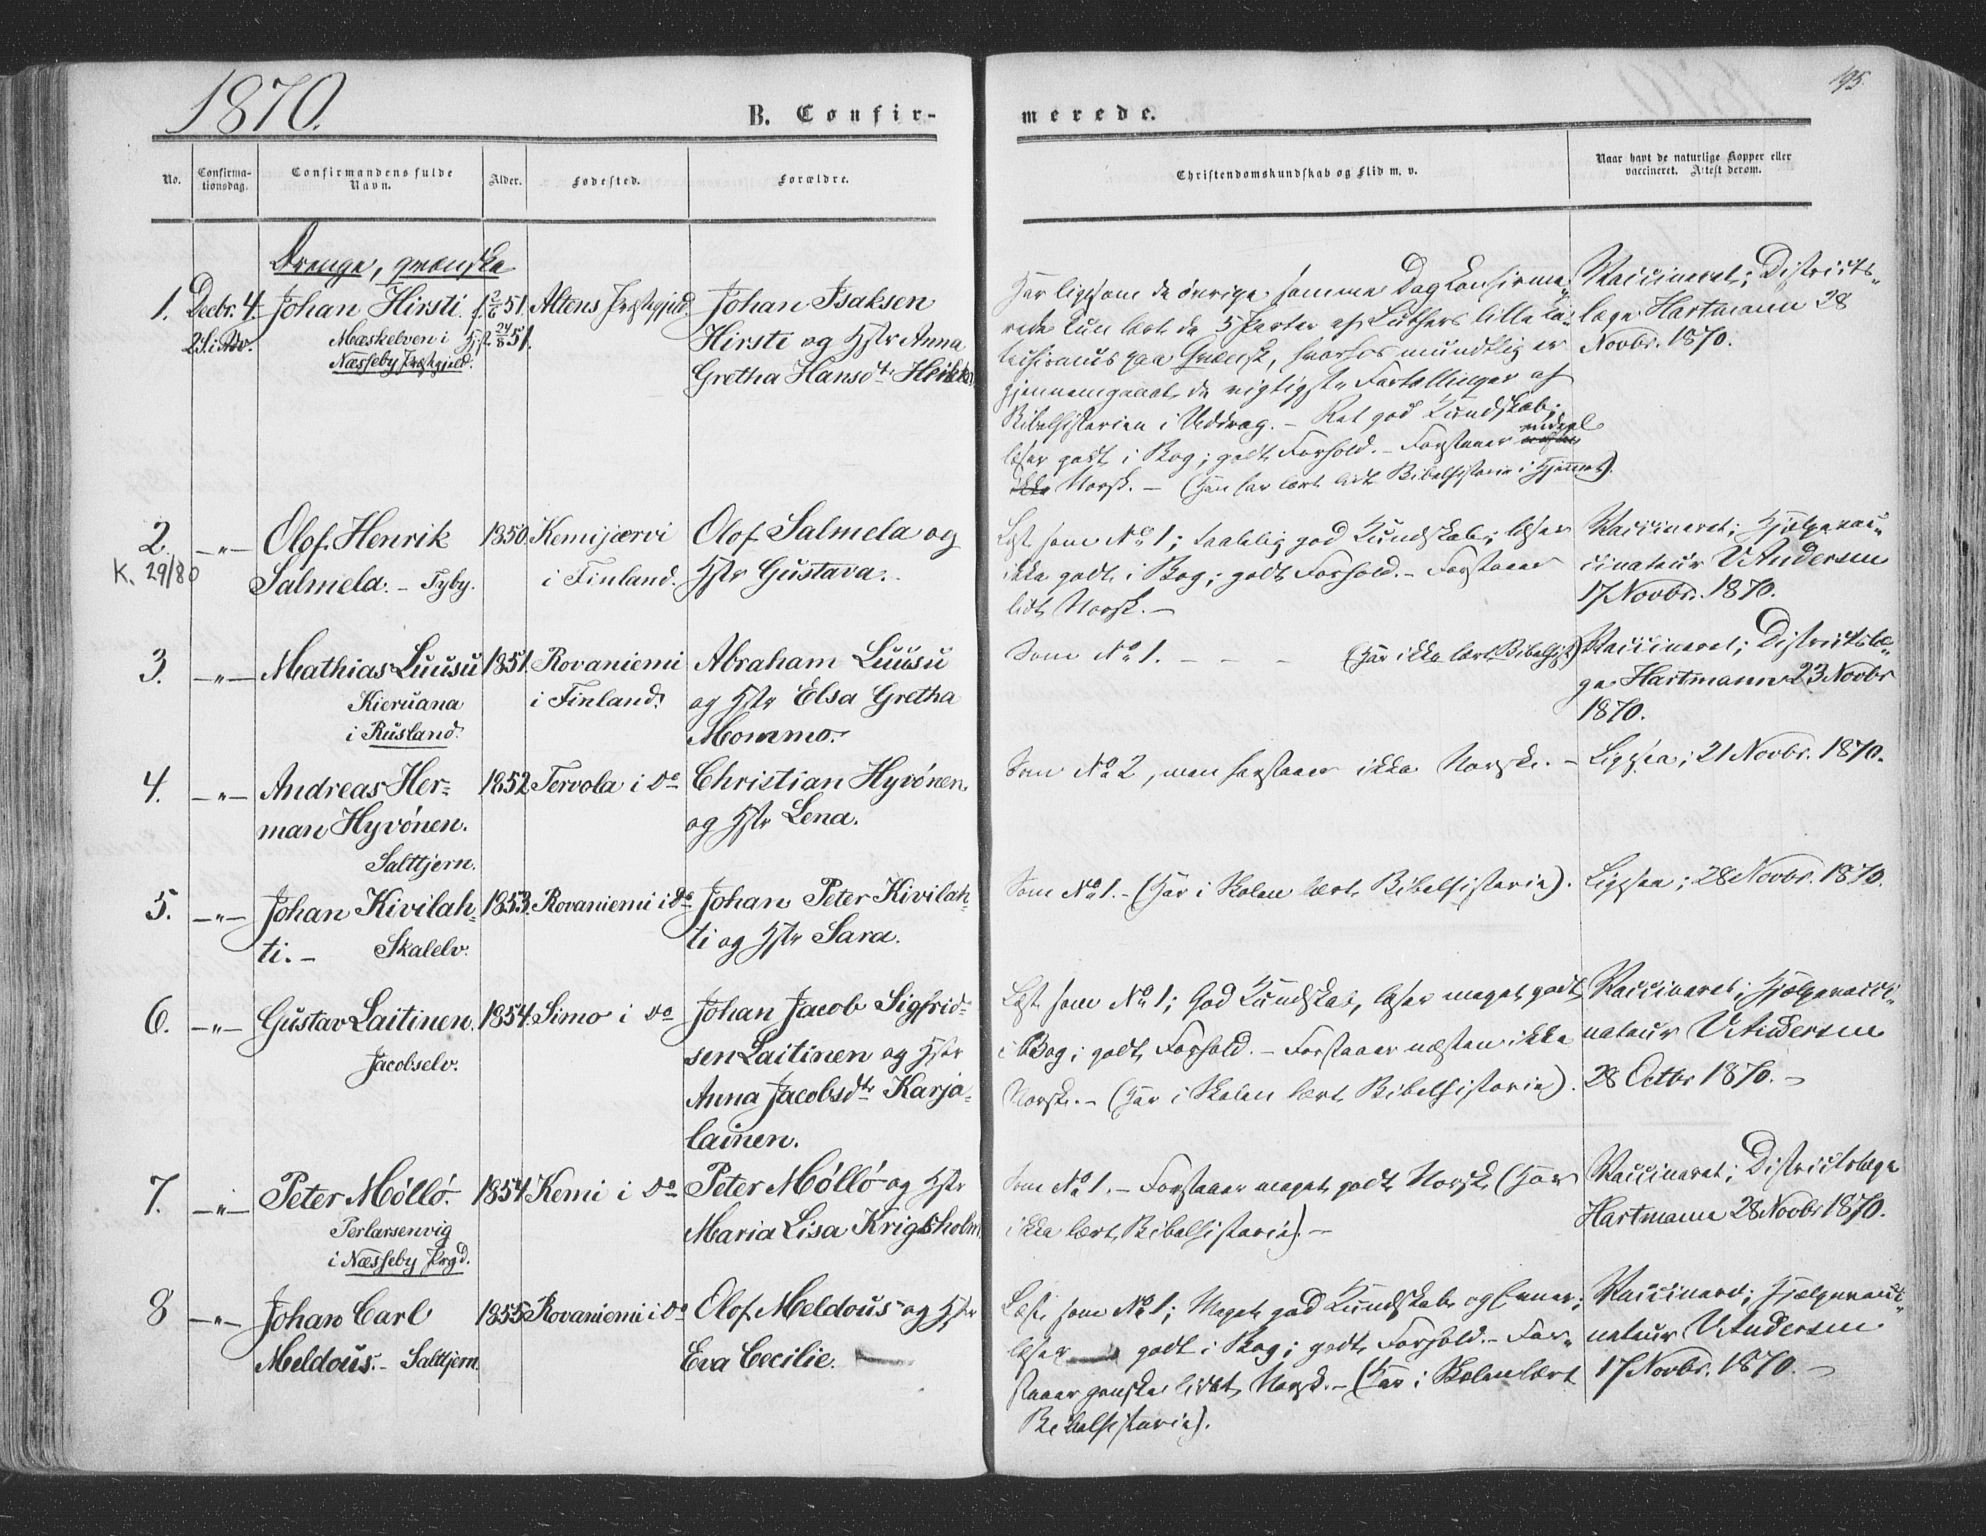 1870.
195.
B. Confir-
merede.
No.
Confirma-
tionsdag.
Confirmandens fulde
Navn.
Alder.
Fødested.
Forældre.
Christendomskundskab og Flid m. v.
Naar havt de naturlige Kopper eller
vaccineret. Attest derom.
Drenge, qvænske
1.
Decbr. 4.
2 S. i Adv.
Johan Hirsti.
Mæskelven i
Næsseby Præstegjeld.
f. 2/6 51.
Hj. d. 24/8 51.
Altens Præstegjeld.
Johan Isaksen
Hirsti og Hstr Anna
Gretha Hansdtr Heikka
Har ligesom de øvrige samme Dag Confirme-
rede kun lært de 5 Parter af Luthers lille Ca-
techismus paa Qvænsk, hvorhos mundtlig er
gjennemgaaet de vigtigste Fortællinger af
Bibelhistorien i Uddrag. – Ret god Kundskab;
læser godt i Bog; godt Forhold. – Forstaaer endeel
ikke Norsk. – (Han har lært lidt Bibelhistorie i Hjemmet).
Vaccineret; Districts-
læge Hartmann 28
Novbr. 1870.
2.
K. 29/80
–„–
Olof Henrik
Salmela. – Tyby.
1850.
Kemijærvi
i Finland.
Olof Salmela og
Hstr Gustava.
Læst som No 1; taalelig god Kundskab; læser
ikke godt i Bog; godt Forhold. – Forstaaer
lidt Norsk. –
Vaccineret; Hjælpevac-
cinateur V. Andersen
17 Novbr. 1870.
3.
–„–
Mathias Luusu
Kieruana
i Rusland.
1851.
Rovaniemi
i Finland.
Abraham Luusu
og Hstr Elsa Gretha
Mommo.
Som No 1. – – – (Har ikke lært Bibelhist.)
Vaccineret; Districtslæ-
ge Hartmann 23 Novbr
1870.
4.
–„–
Andreas Her-
man Hyvönen.
Salttjern.
1852
Tervola i do
Christian Hyvönen
og Hstr Lena.
Som No 2, men forstaaer ikke Norsk. –
Ligesaa; 21 Novbr. 1870.
5.
–„–
Johan Kivilah-
ti. – Skalelv.
1853.
Rovaniemi i do
Johan Peter Kivilah-
ti og Hstr Sara.
Som No 1. – (Har i Skolen lært Bibelhistorie).
Ligesaa; 28 Novbr. 1870.
6.
–„–
Gustav Laitinen.
Jacobselv.
1854.
Simo i do
Johan Jacob Sigfrid-
sen Laitinen og Hstr
Anna Jacobsdtr Karja-
lainen.
Læst som No 1; God Kundskab, læser meget godt
i Bog; godt Forhold. – Forstaaer næsten ikke
Norsk. – (Har i Skolen lært Bibelhistorie).
Vaccineret; Hjælpevacci-
nateur V. Andersen
28 Octbr 1870. –
7.
–„–
Peter Møllö.
Perlarsenvig
i Næsseby Prgd.
1854.
Kemi i do
Peter Møllö og Hstr
Maria Lisa Krigsholm
Som No 1. – Forstaaer meget godt Norsk (Har
ikke lært Bibelhistorie). –
Vaccineret; Districtslæge
Hartmann 28 Novbr 1870.
8
–„–
Johan Carl
Meldous. – Salttjern.
1855
Rovaniemi i do
Olof Meldous og Hstr
Eva Cecilie.
Læst som No 1; Meget god Kundskab og Evner;
læser godt i Bog; godt Forhold. – For-
staaer ganske lidt Norsk. – (Har i Skolen lært
Bibelhistorie).
Vaccineret; Hjælpevacci-
nateur V. Andersen
17 Novbr. 1870. –